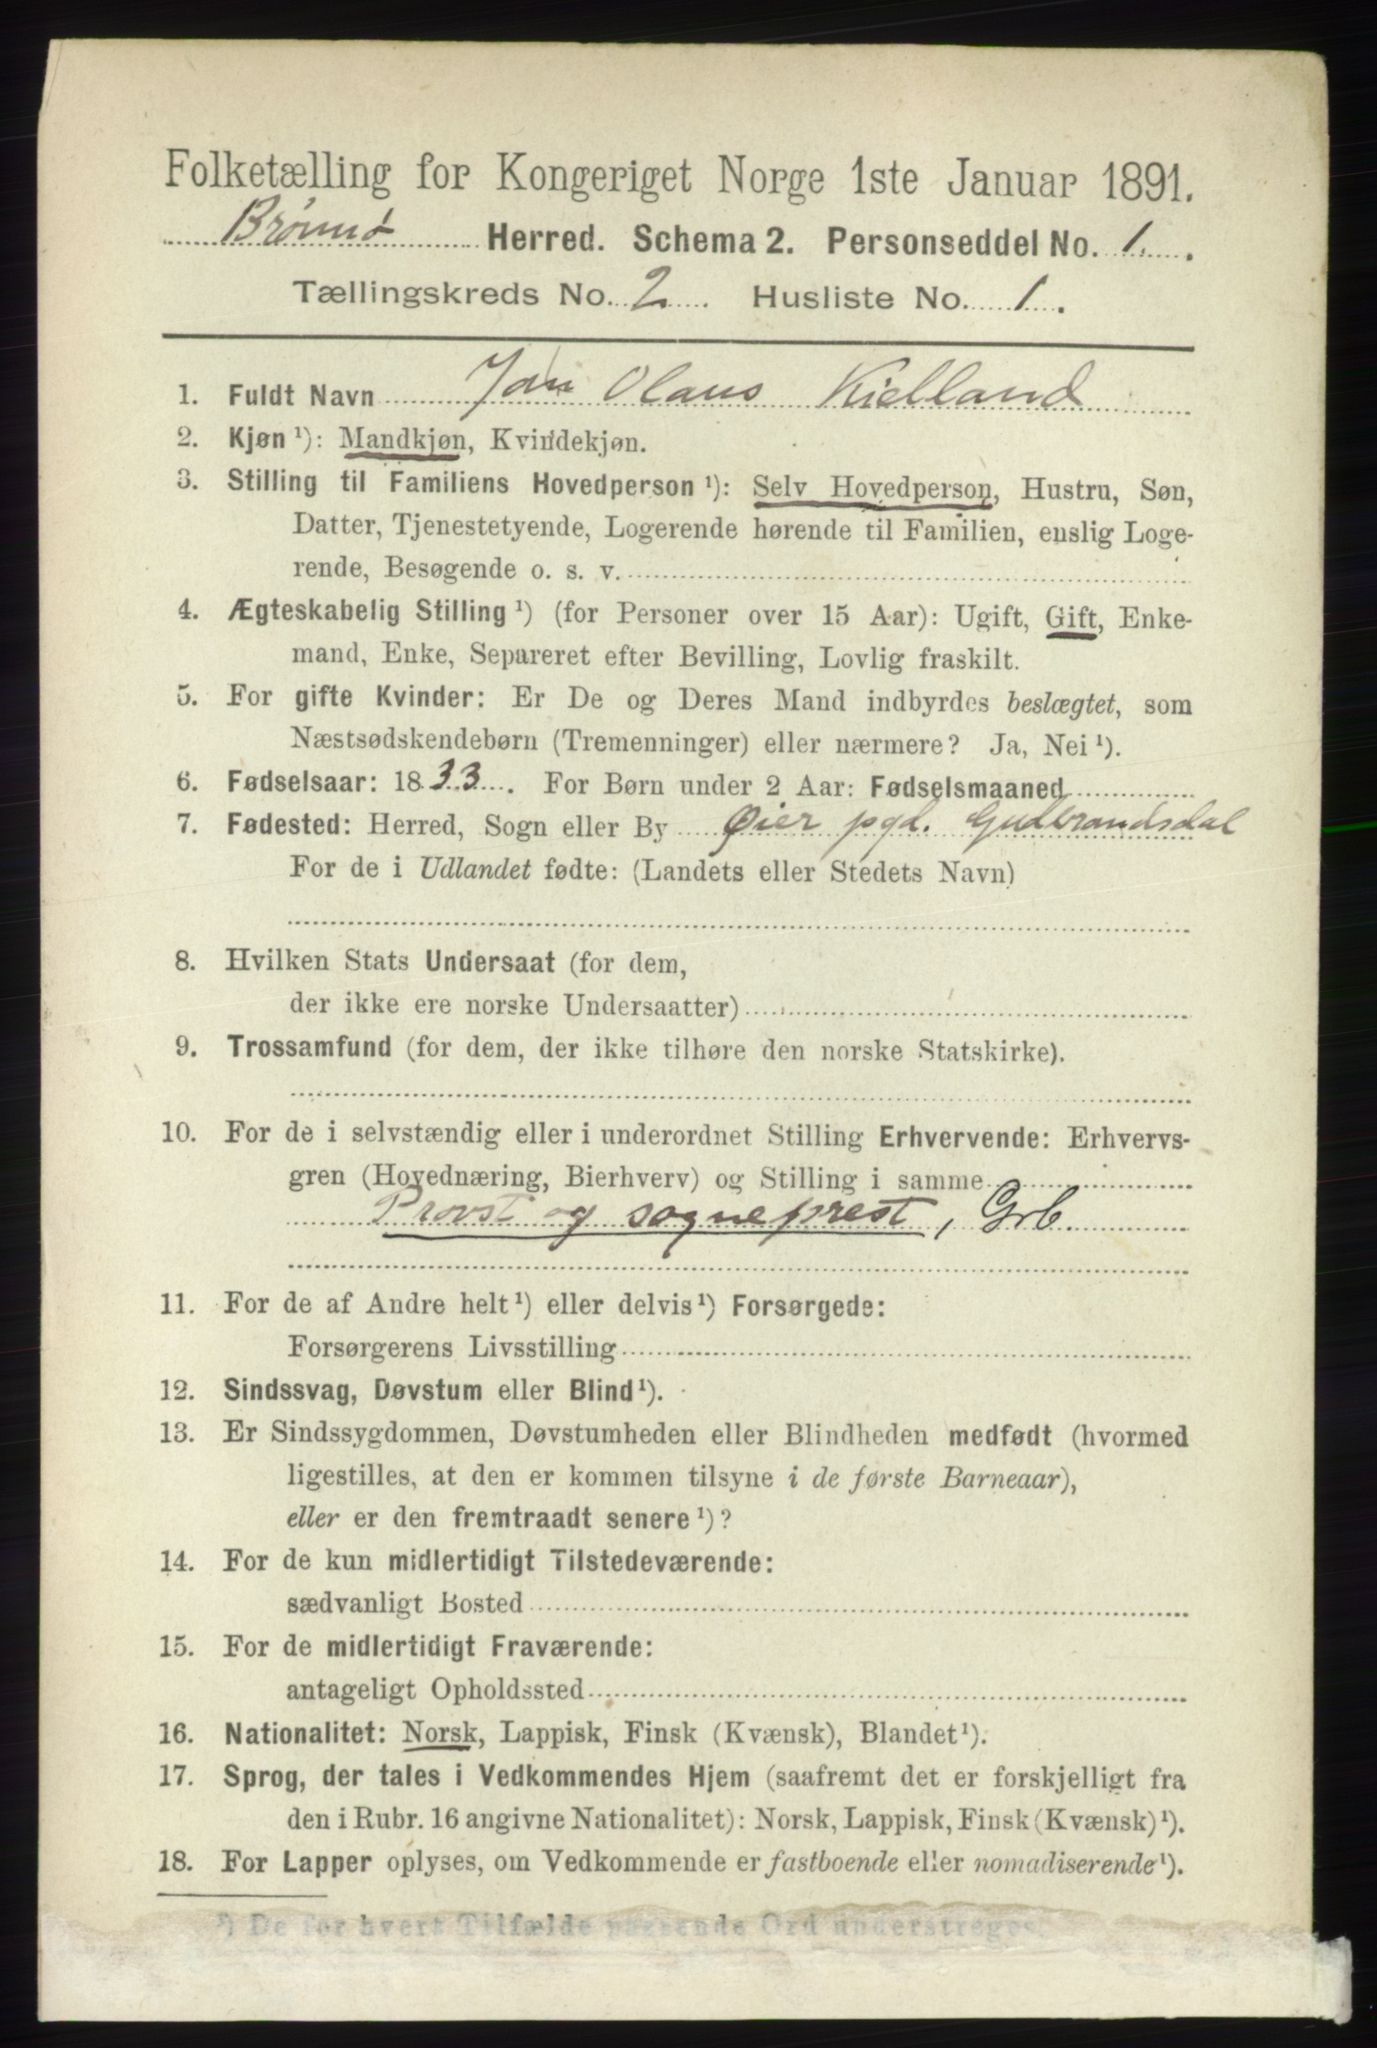 Folketælling for Kongeriget Norge 1ste Januar 1891.
Brønnø Herred. Schema 2. Personseddel No. 1.
Tællingskreds No. 2. Husliste No. 1.
1. Fuldt Navn Jan Olaus Kielland
2. Kjøn ¹): Mandkjøn, Kvindekjøn.
3. Stilling til Familiens Hovedperson ¹): Selv Hovedperson, Hustru, Søn,
Datter, Tjenestetyende, Logerende hørende til Familien, enslig Loge-
rende, Besøgende o. s. v.
4. Ægteskabelig Stilling ¹) (for Personer over 15 Aar): Ugift, Gift, Enke-
mand, Enke, Separeret efter Bevilling, Lovlig fraskilt.
5. For gifte Kvinder: Er De og Deres Mand indbyrdes beslægtet, som
Næstsødskendebørn (Tremenninger) eller nærmere? Ja, Nei ¹).
6. Fødselsaar: 1833. For Børn under 2 Aar: Fødselsmaaned
7. Fødested: Herred, Sogn eller By Øier pgd. Gudbrandsdal
For de i Udlandet fødte: (Landets eller Stedets Navn)
8. Hvilken Stats Undersaat (for dem,
der ikke ere norske Undersaatter)
9. Trossamfund (for dem, der ikke tilhøre den norske Statskirke).
10. For de i selvstændig eller i underordnet Stilling Erhvervende: Erhvervs-
gren (Hovednæring, Bierhverv) og Stilling i samme
Provst og sogneprest, Grb.
11. For de af Andre helt ¹) eller delvis ¹) Forsørgede:
Forsørgerens Livsstilling
12. Sindssvag, Døvstum eller Blind ¹).
13. Er Sindssygdommen, Døvstumheden eller Blindheden medfødt (hvormed
ligestilles, at den er kommen tilsyne i de første Barneaar),
eller er den fremtraadt senere ¹)?
14. For de kun midlertidigt Tilstedeværende:
sædvanligt Bosted
15. For de midlertidigt Fraværende:
antageligt Opholdssted
16. Nationalitet: Norsk, Lappisk, Finsk (Kvænsk), Blandet ¹).
17. Sprog, der tales i Vedkommendes Hjem (saafremt det er forskjelligt fra
den i Rubr. 16 angivne Nationalitet): Norsk, Lappisk, Finsk (Kvænsk) ¹).
18. For Lapper oplyses, om Vedkommende er fastboende eller nomadiserende ¹).
¹) De for hvert Tilfælde passende Ord understreges.